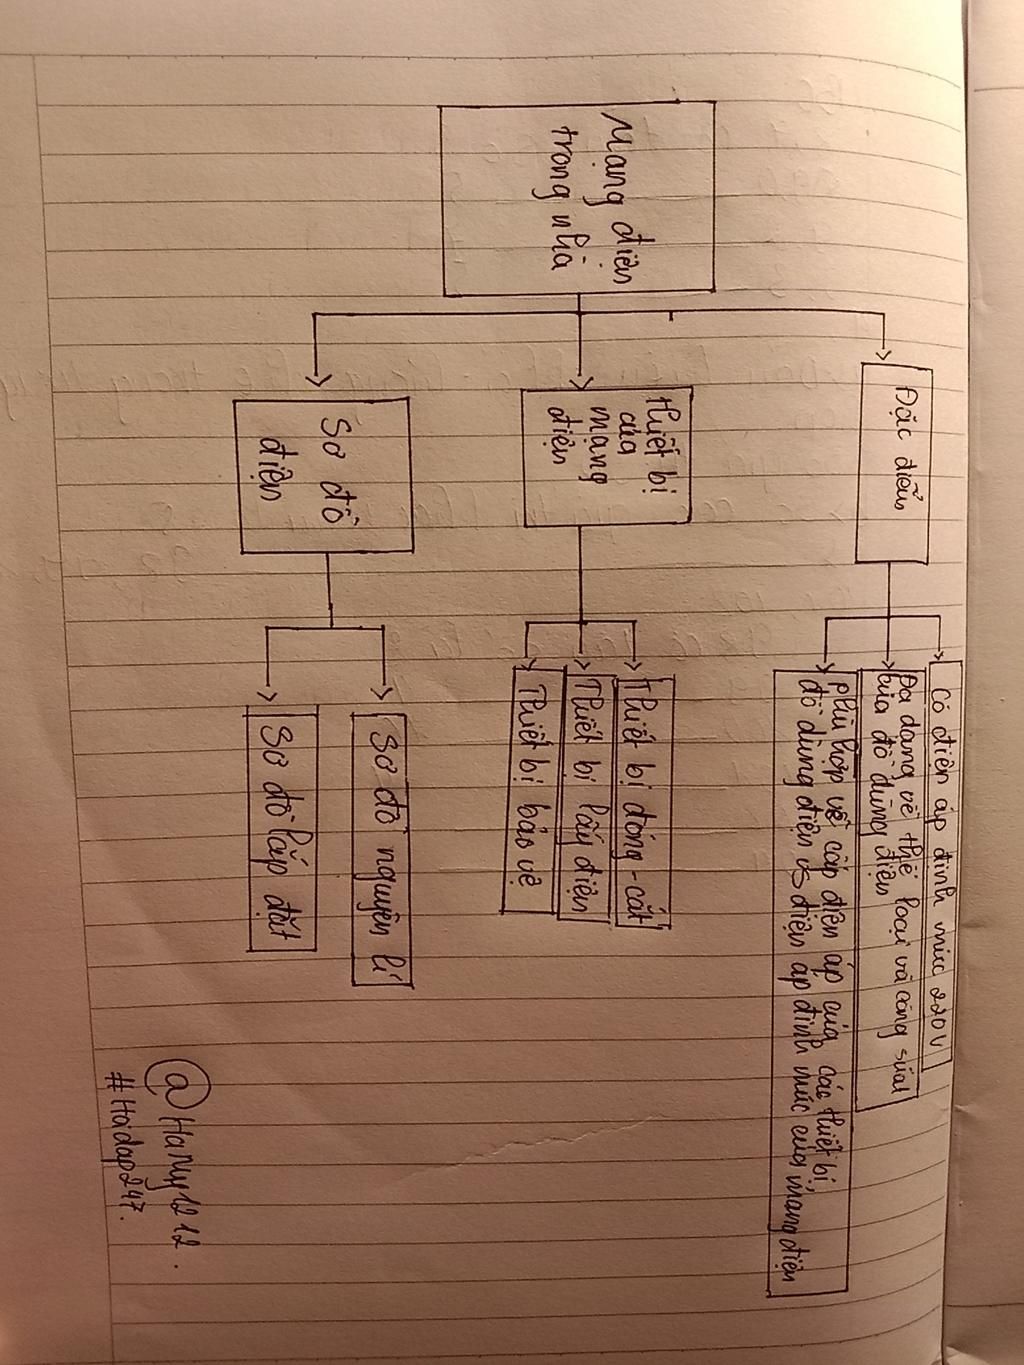 Mạng điện
trong nhà
Đặc điểm
Có điện áp định mức 220V
Đa dạng về thể loại và công suất
của đồ dùng điện
Phù hợp về cấp điện áp của các thiết bị,
đồ dùng điện vs điện áp định mức của mạng điện
Thiết bị
của
mạng
điện
Thiết bị đóng - cắt
Thiết bị lấy điện
Thiết bị bảo vệ
Sơ đồ
điện
Sơ đồ nguyên lí
Sơ đồ lắp đặt
@Hanny1212.
#Hoidap247.